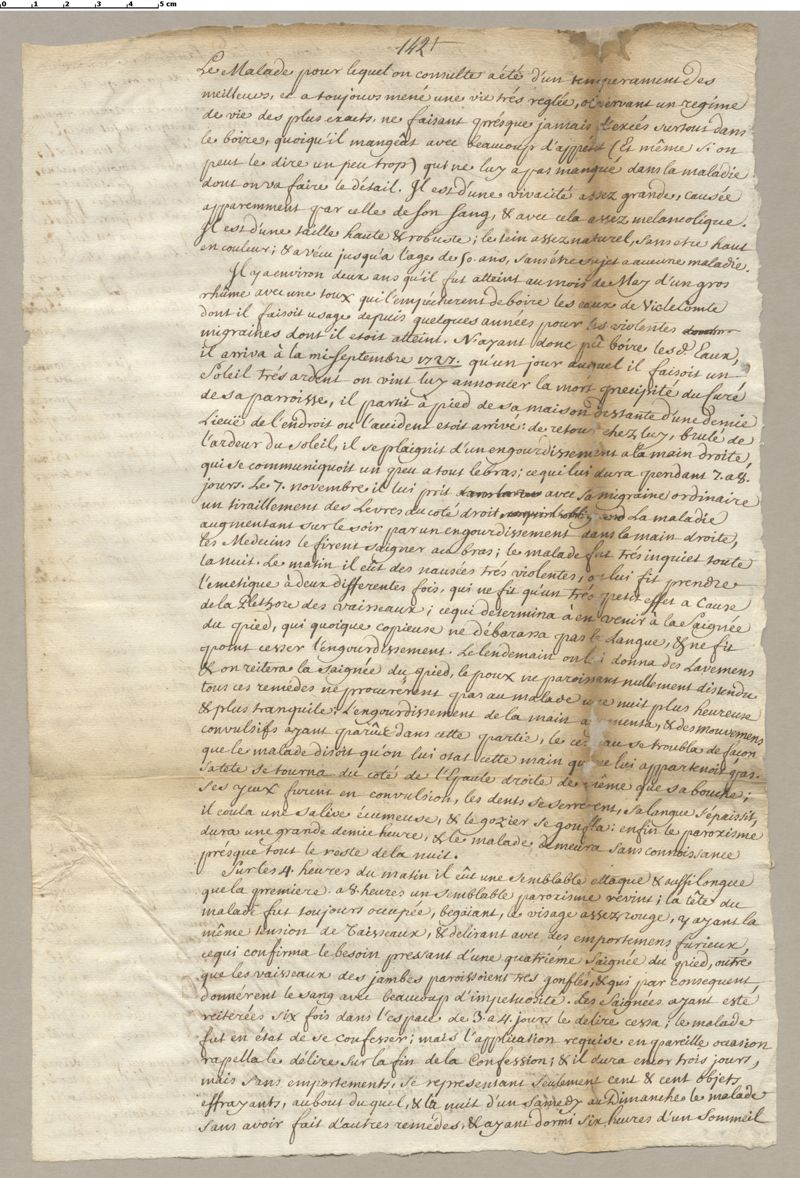 0 1 2 3 4 5 cm
142
Le Malade pour lequel on consulte a été d'un temperament des
meilleurs, et a toujours mené une vie trés reglée, observant un regime
de vie des plus exacts, ne faisant presque jamais d'excés surtout dans
le boire, quoiqu'il mangeât avec beaucoup d'appetit (Et même si on
peut le dire un peu trop) qui ne luy a pas manqué dans la maladie
dont on va faire le détail. Il est d'une vivacité assez grande, causée
apparemment par celle de son sang, & avec cela assez melancolique.
Il est d'une taille haute & robuste; le tein assez naturel, sans être haut
en couleur; & a vécu jusqu'a l'age de 50. ans, sans être sujet a aucune maladie.
Il y a environ deux ans qu'il fut atteint au mois de May d'un gros
rhûme avec une toux qui l'empécherent de boire les eaux de Vic le Comte
dont il faisoit usage depuis quelques années pour les violentes
migraines dont il etoit atteint. N'ayant donc pû boire les d. Eaux,
il arriva à la mi Septembre 1727. qu'un jour auquel il faisoit un
Soleil trés ardent on vint luy annoncer la mort precipité du Curé
de sa parroisse, il partit à pied de sa maison distante d'une demie
Lieuë de l'endroit ou l'accident etoit arrivé: de retour chez luy, brulé de
l'ardeur du soleil, il se plaignit d'un engourdissement a la main droite,
qui se communiquoit un peu a tout le bras; ce qui lui dura pendant 7. a 8.
jours. Le 7. novembre il lui prit avec sa migraine ordinaire
un tiraillement des Levres du coté droit La maladie
augmentant sur le soir par un engourdissement dans la main droite,
les Medecins le firent saigner au bras; le malade fut trés inquiet toute
la nuit. Le matin il eût des nausées trés violentes, on lui fit prendre
l'emetique à deux differentes fois, qui ne fit qu'un trés petit effet a Cause
de la Plethore des vaisseaux; ce qui determina à en venir à la Saignée
du pied, qui quoique copieuse ne débarassa pas la Langue, & ne fit
point cesser l'engourdissement. Le lendemain on lui donna des Lavemens
& on reitera la saignée du pied, le poux ne paroissant nullement distendu
tous ces remédes ne procurérent pas au malade une nuit plus heureuse
& plus tranquile; L'engourdissement de la main augmenta, & des mouvemens
convulsifs ayant parûs dans cette partie, le cerveau se troubla de façon
que le malade disoit qu'on lui otat cette main qui ne lui appartenoit pas.
Sa tête se tourna du coté de l'Epaule droite de même que sa bouche;
Ses yeux furent en convulsion, les dents se serrerent, sa langue s'épaissit,
il coula une salive écumeuse, & le gozier se gonfla: enfin le paroxisme
dura une grande demie heure, & le malade demeura sans connoissance
présque tout le reste de la nuit.
Sur les 4. heures du matin il eût une semblable attaque & aussi longue
que la premiere. a 8. heures un semblable paroxisme révint; la tête du
malade fut toujours occupée, begaiant, le visage assez rouge, y ayant la
même tension de vaisseaux, & delirant avec des emportemens furieux,
ce qui confirma le besoin pressant d'une quatriéme saignée du pied, outre
que les vaisseaux des jambes paroissoient trés gonflés, & qui par consequent
donnérent le sang avec beaucoup d'impetuosité. Les Saignées ayant esté
reïterées six fois dans l'espace de 3 a 4. jours le délire cessa; le malade
fut en état de se confesser; mais l'application requise en pareille ocasion
rapella le délire sur la fin de la Confession; & il dura encor trois jours,
mais sans emportements, se representant seulement cent & cent objets
effrayants, au bout du quel, & la nuit d'un Samedy au Dimanche le malade
sans avoir fait d'autres remédes, & ayant dormi six heures d'un Sommeil